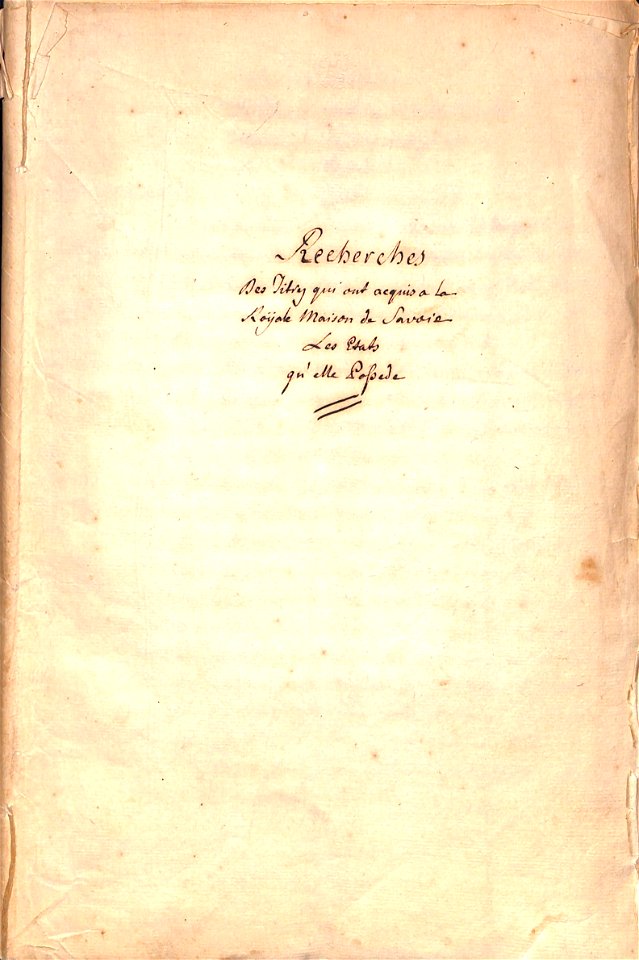 Recherches
Des Titres qui ont acquis a la
Royale Maison de Savoie
Les Etats
qu'elle Possede